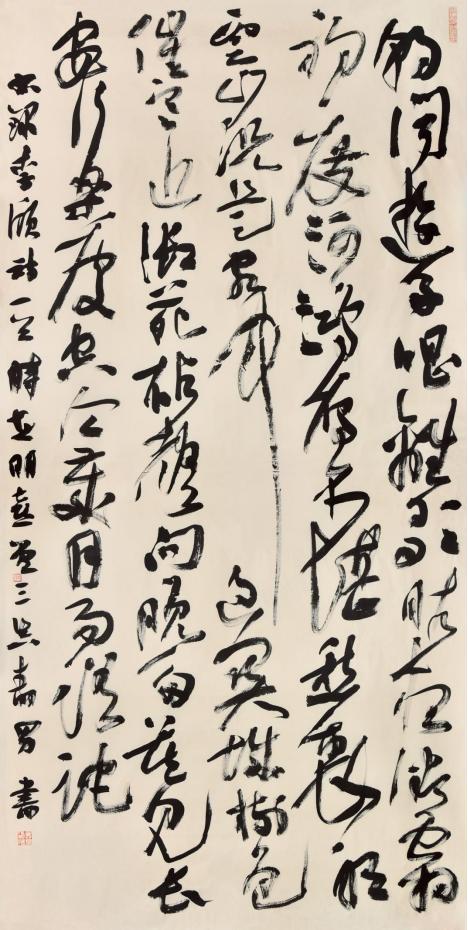 朝聞遊子唱離歌昨夜微霜
初度河鴻雁不堪愁裏聽
雲山況是客中過關城樹色
催寒近御苑砧聲向晚多莫見長
安行樂處空令歲月易蹉跎
錄李頎詩一首時在明三吳壽男書